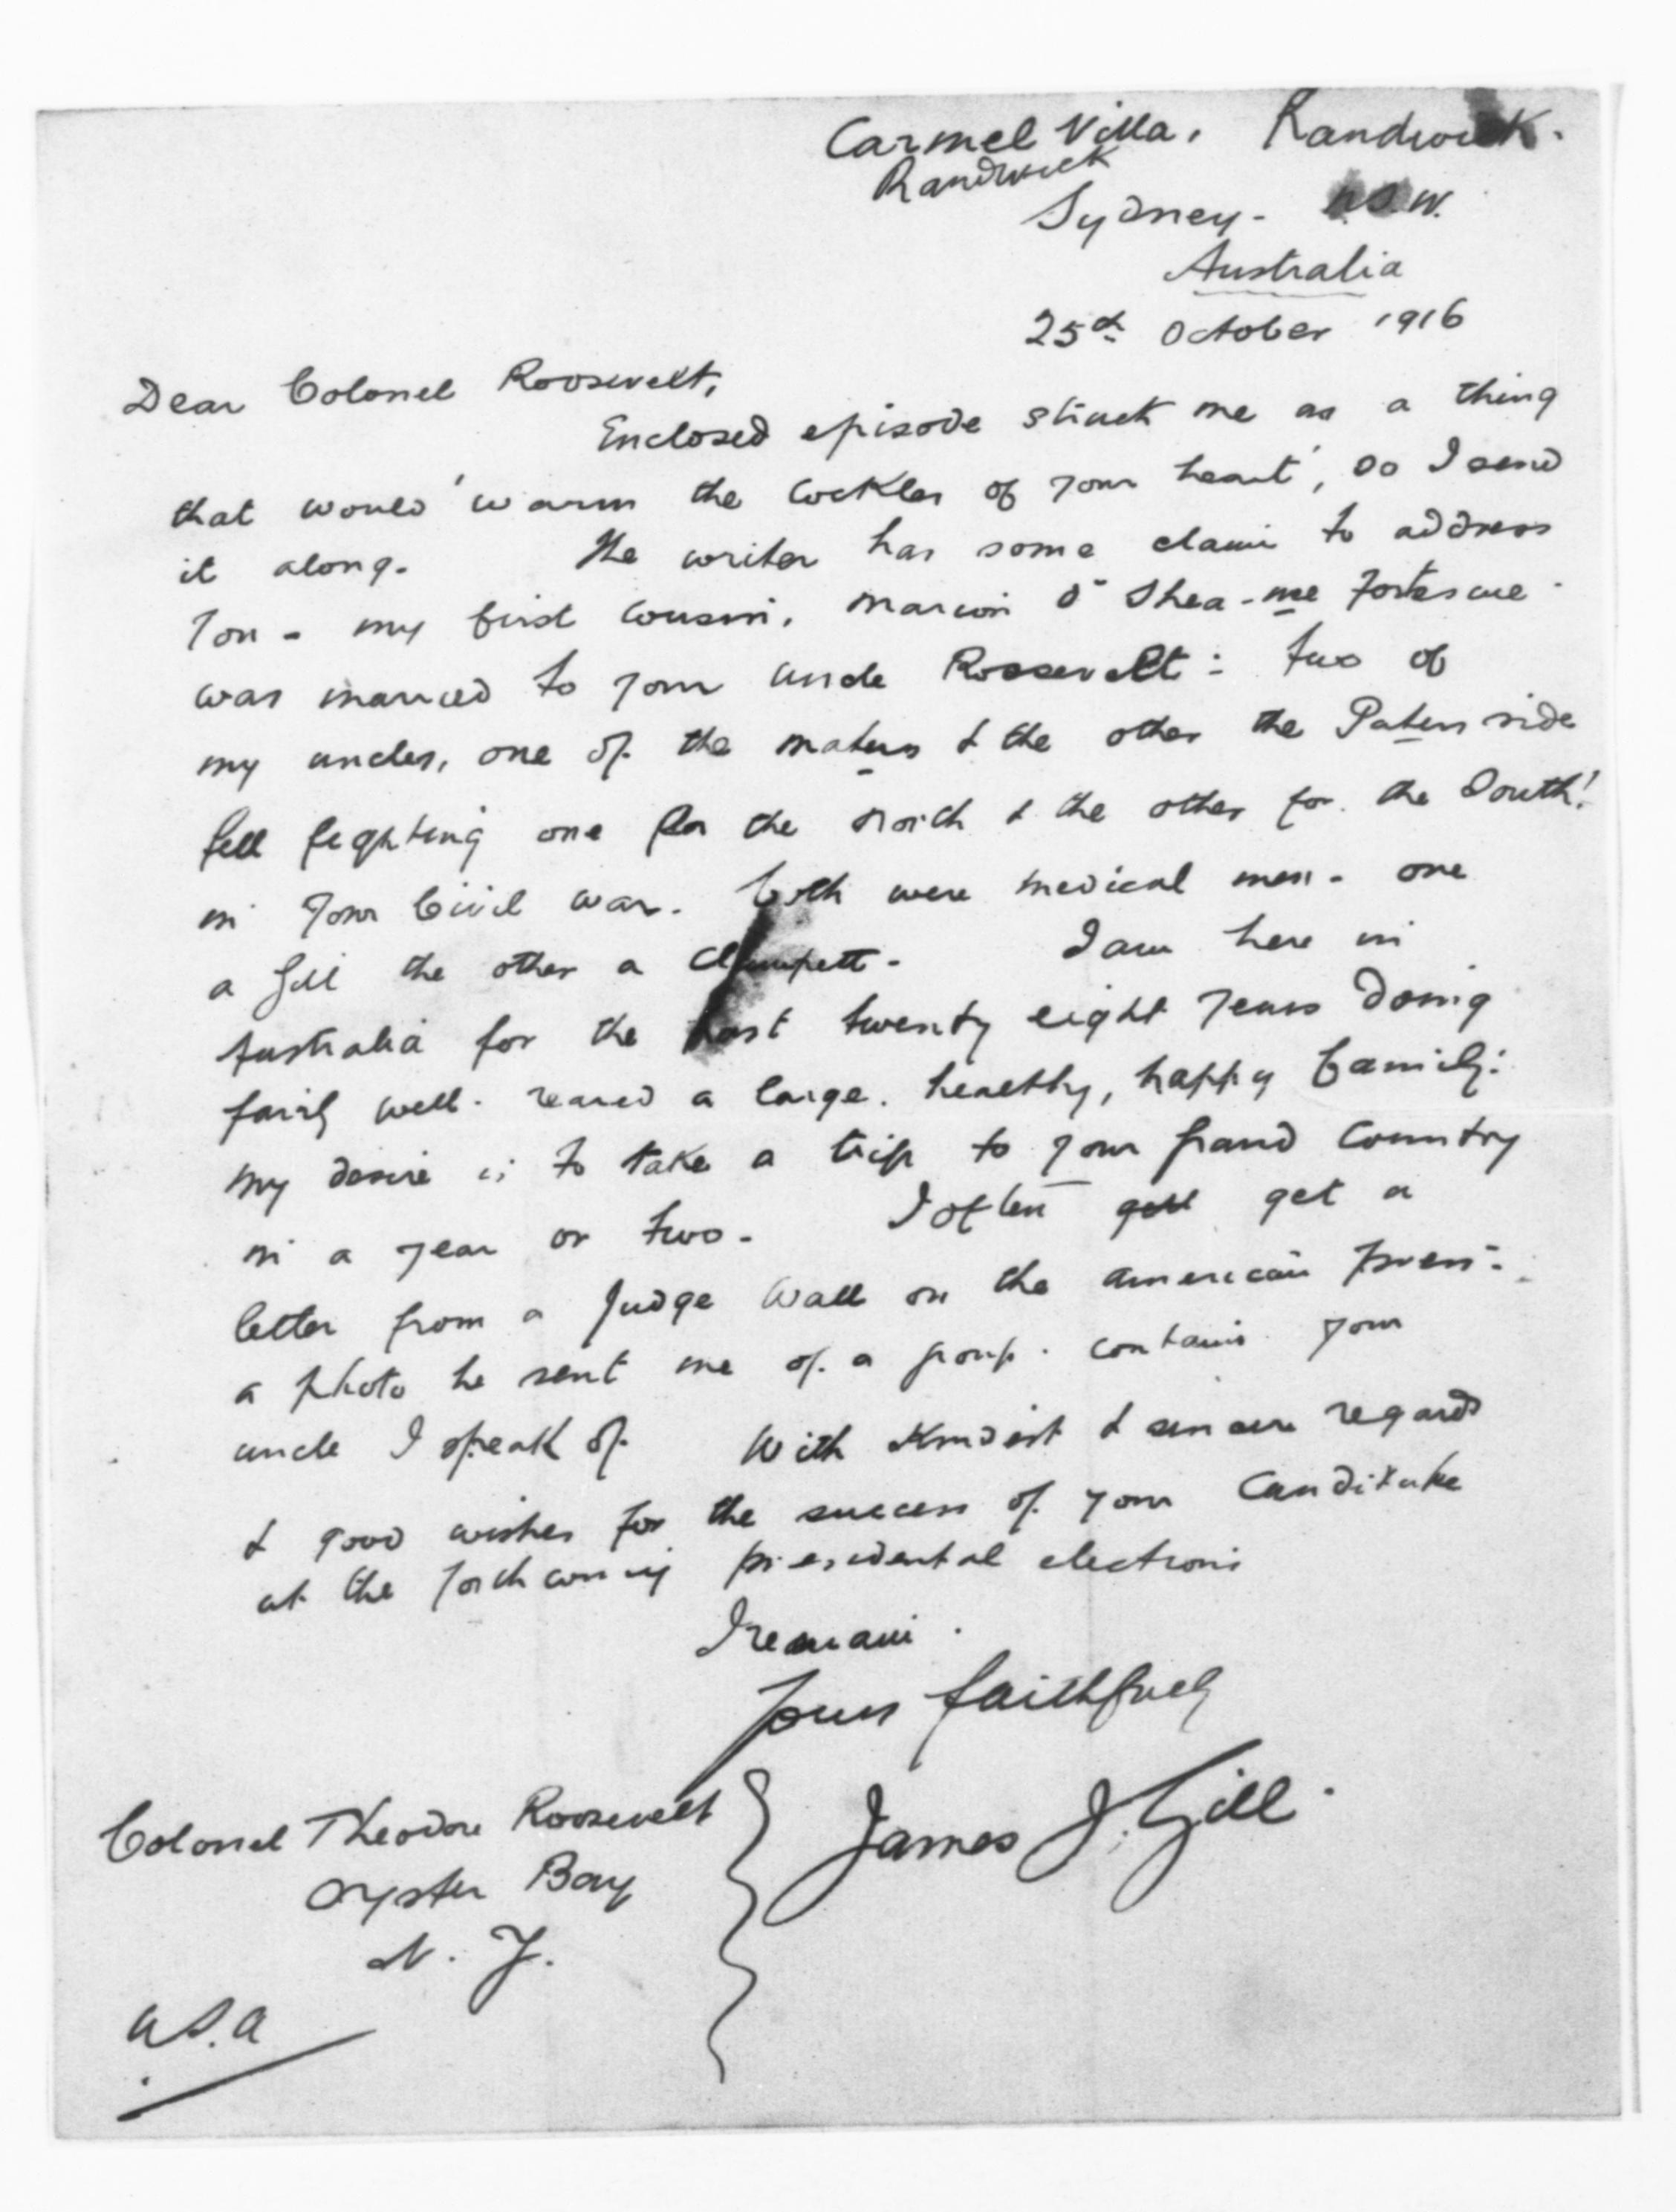 Carmel Villa, Randwick.
Randwick
Sydney - N.S.W.
Australia
25th October 1916
Dear Colonel Roosevelt,
Enclosed episode struck me as a thing
that would 'warm the cockles of your heart', so I send
it along. The writer has some claim to address
you - my first cousin, Marion O'Shea - née Fortescue -
was married to your uncle Roosevelt: two of
my uncles, one of the maters & the other the Paters side
fell fighting one for the North & the other for the South!
in your Civil war. Both were medical men - one
a Gill the other a Clampett - I am here in
Australia for the past twenty eight years doing
fairly well - reared a large, healthy, happy family:
my desire is to take a trip to your grand country
in a year or two - I often get a
letter from a Judge Wall on the American Press -
a photo he sent me of a group - contains your
uncle I speak of. With kindest & sincere regards
& good wishes for the success of your
at the forthcoming presidental elections
I remain.
Yours faithfully
James J. Gill.
Colonel Theodore Roosevelt
Oyster Bay
N. Y.
U.S.A